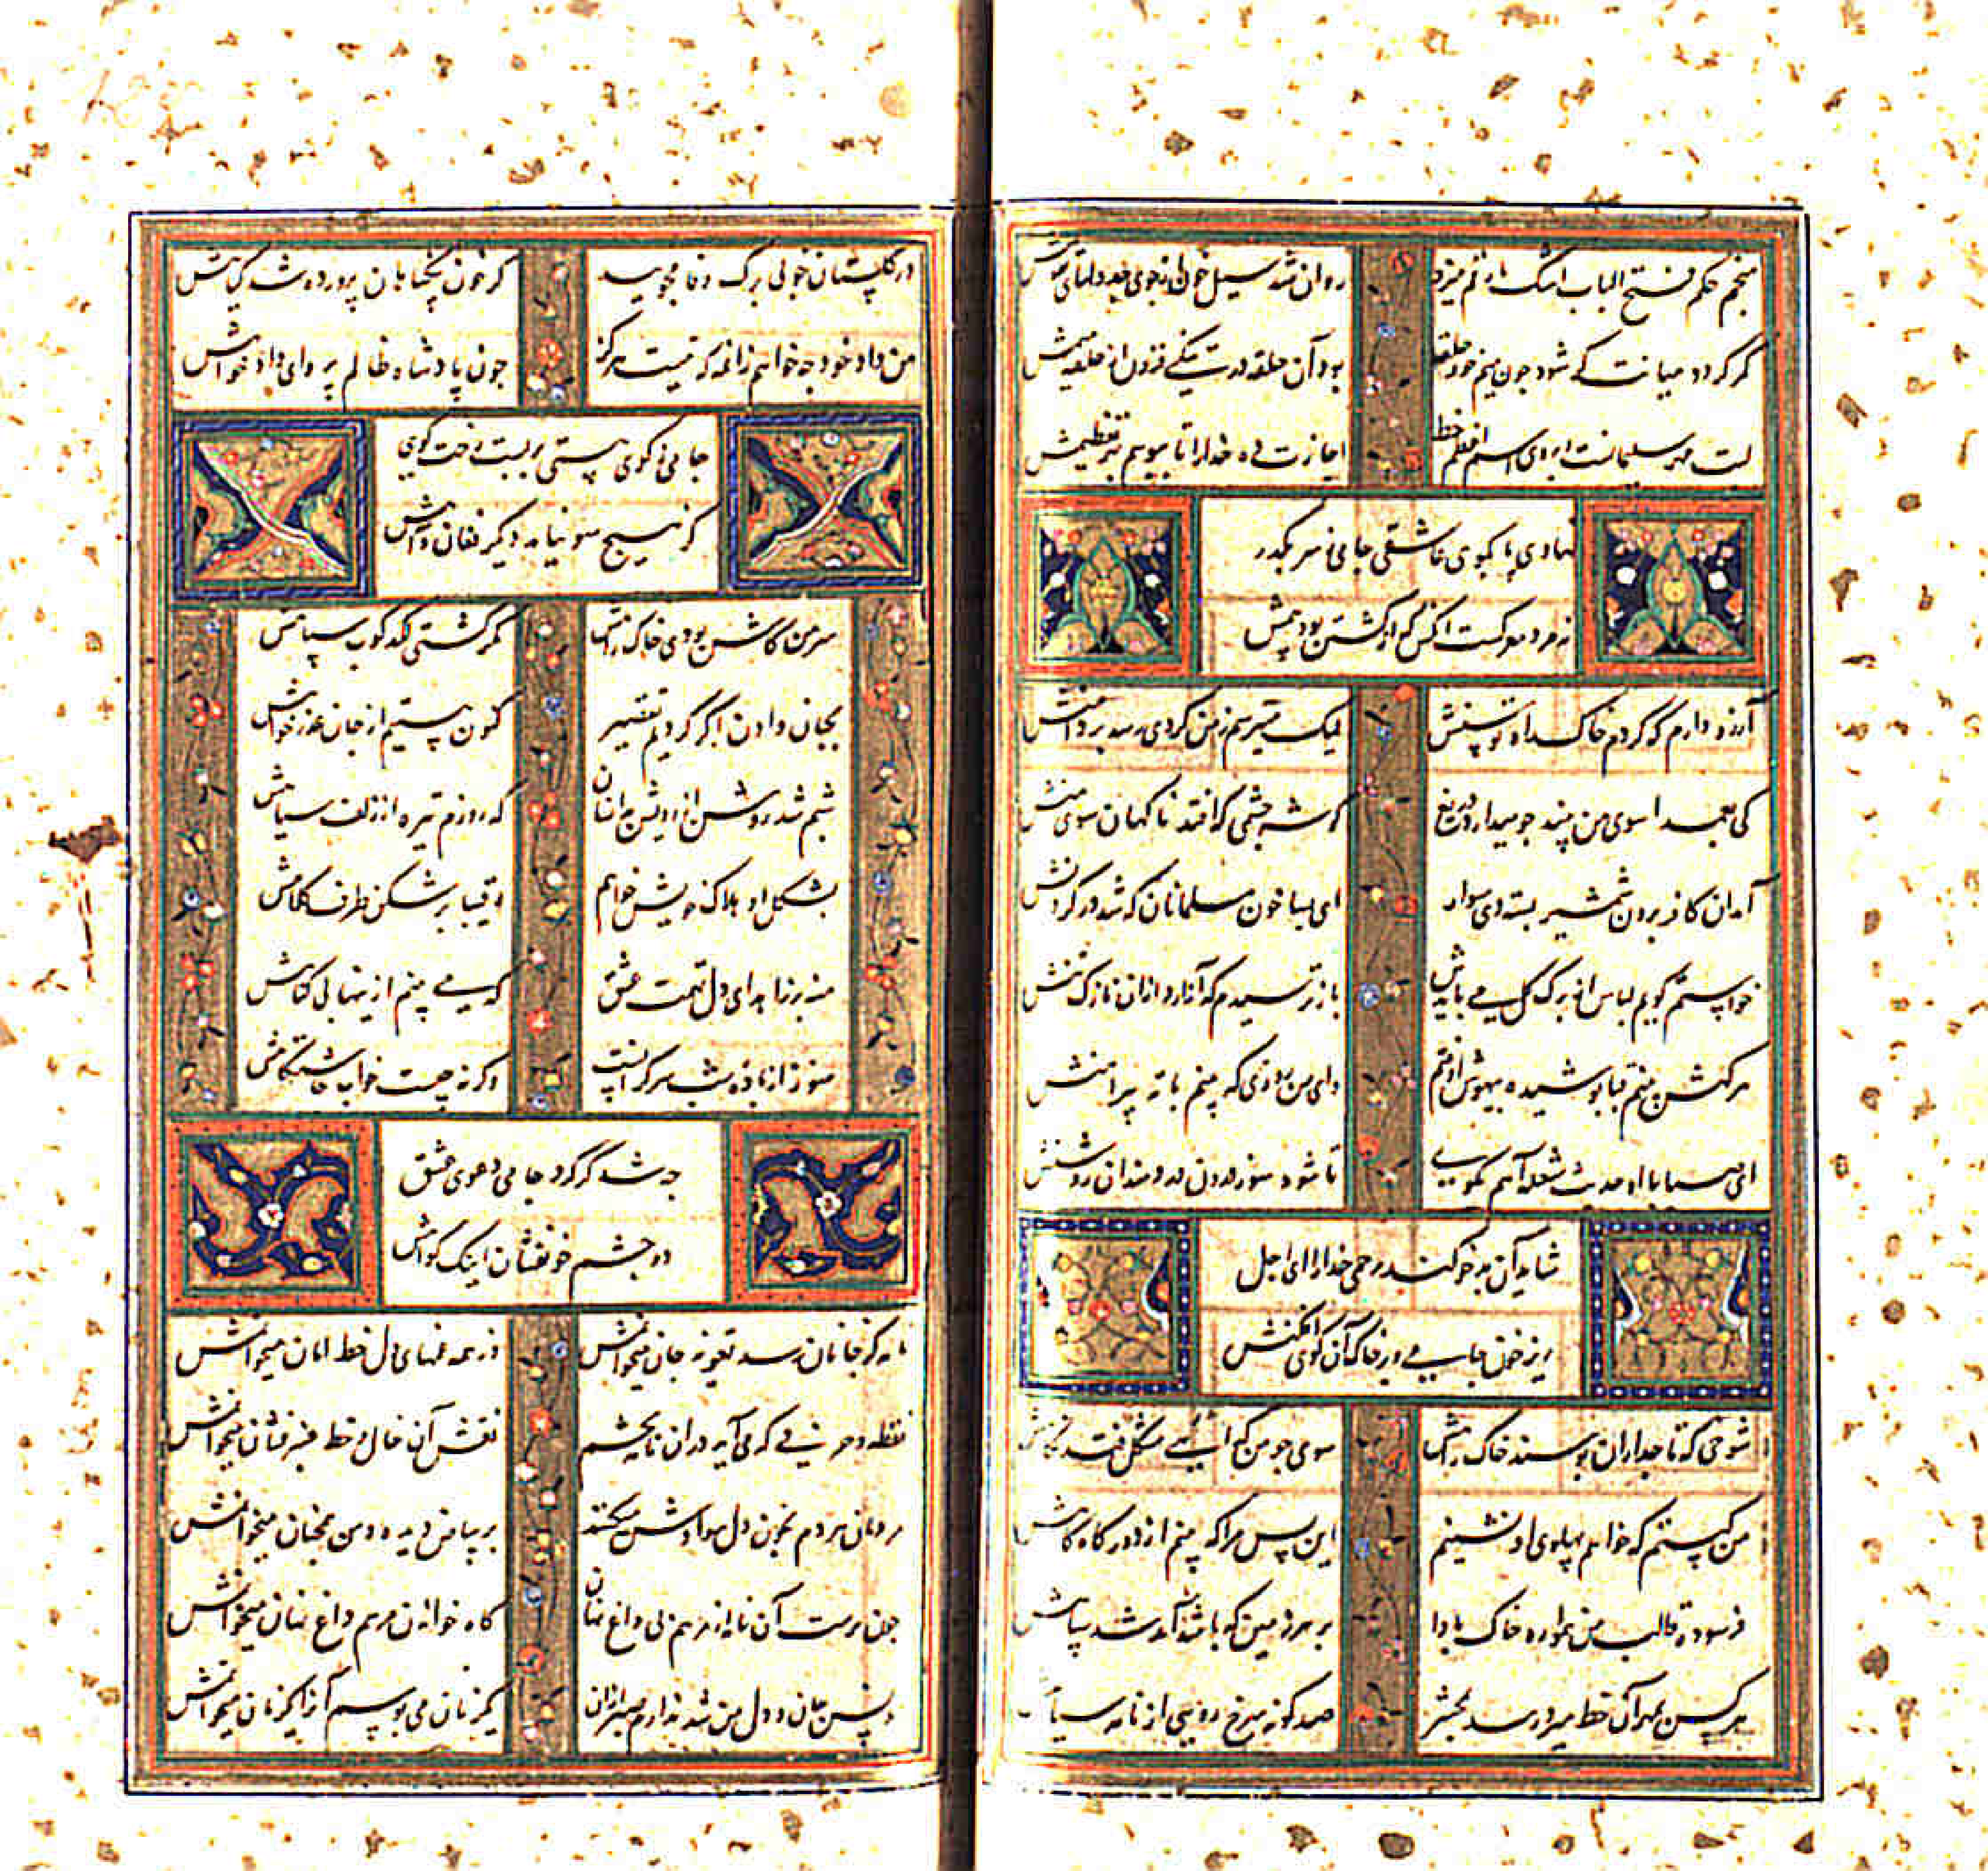 منجم حکم فتح الباب اشک ما رقم میزد
روان شد سیل خون از جوی
گر گردد میانت کی شود چون میم خود حلقه
بود آن حلقه در تنگی فزون از حلقه میمش
لبت مهر سلیمانست
اجازت ده خدا را تا ببوسم بهر تعظیمش
نهادی پا بکوی عاشقی جامی ز سر بگذر
نه مرد معرکست آنکس که از کشتن بود بیمش
آرزو دارم که گردم خاک راه توسنش
لیک میترسم ز من گردی رسد بر دامنش
کی بعمدا سوی من بیند چو میدارد دریغ
گوشه چشمی که افتد ناگهان سوی منش
آمد آن کافر برون شمشیر بسته دی سوار
ای بسا خون مسلمانان که شد در گردنش
خواستم گویم لباس از برگ گل می بایدش
باز ترسیدم که آزارد ازان نازک تنش
هر کش بینم قبا پوشیده بیهوش اوفتم
وای من روزی که بینم با ته پیراهنش
ای صبا با او حدیث شعله آهم بگوی
تا شود سوز درون دردمندان روشنش
شاید آن بدخو کند رحمی خدا را ای اجل
ریز خون جامی و بر خاک آن کوی افکنش
شوخی که تاجداران بوسند خاک راهش
سوی چو من گدایی مشکل فتد نگاهش
من کیستم که خواهم پهلوی او نشینم
این بس مرا که بینم از دور گاه گاهش
فرسوده قالب من همواره خاک بادا
بر هر زمین که باشد آمد شد سپاهش
هر کس بمهر آن خط میرد رسد بمحشر
صد گونه سرخ رویی از نامه سیاهش
در گلستان خوبی برگ وفا مجویید
کز خون بیگناهان پرورده شد گیاهش
من داد خود چه خواهم زان مه که نیست هرگز
چون پادشاه ظالم پروای دادخواهش
جامی ز کوی هستی بربست رخت گویی
کز هیچ سو نیامد دیگر فغان و آهش
سر من کاش بودی خاک راهش
مگر گشتی لگدکوب سپاهش
بجان دادن اگر کردیم تقصیر
کنون هستیم از جان عذرخواهش
شبم شد روشن از رویش بدانسان
که روزم تیره از زلف سیاهش
بشکل او هلاک خویش خواهم
رقیبا برشکن طرف کلاهش
منه بر زاهد ای دل تهمت عشق
که می بینم ازینها بی گناهش
هنوز از باده شب سرگرانست
وگرنه چیست خواب چاشتگاهش
چه شد گر کرد جامی دعوی عشق
دو چشم خونفشان اینک گواهش
نامه کز جانان رسد تعویذ جان میخوانمش
وز همه غمهای دل خط امان میخوانمش
نقطه و حرفی که می آید دران نامه بچشم
نقش آن خال و خط عنبرفشان میخوانمش
مردمان هر دم بخون دل سوادش میکنند
بر بیاض دیده و من همچنان میخوانمش
چون پرست آن نامه از مرهم پی داغ نهان
گاه خواندن مرهم داغ نهان میخوانمش
بس جان و دل من شد ندارم صبر ازان
یکزمان می بوسم آنرا یکزمان میخوانمش